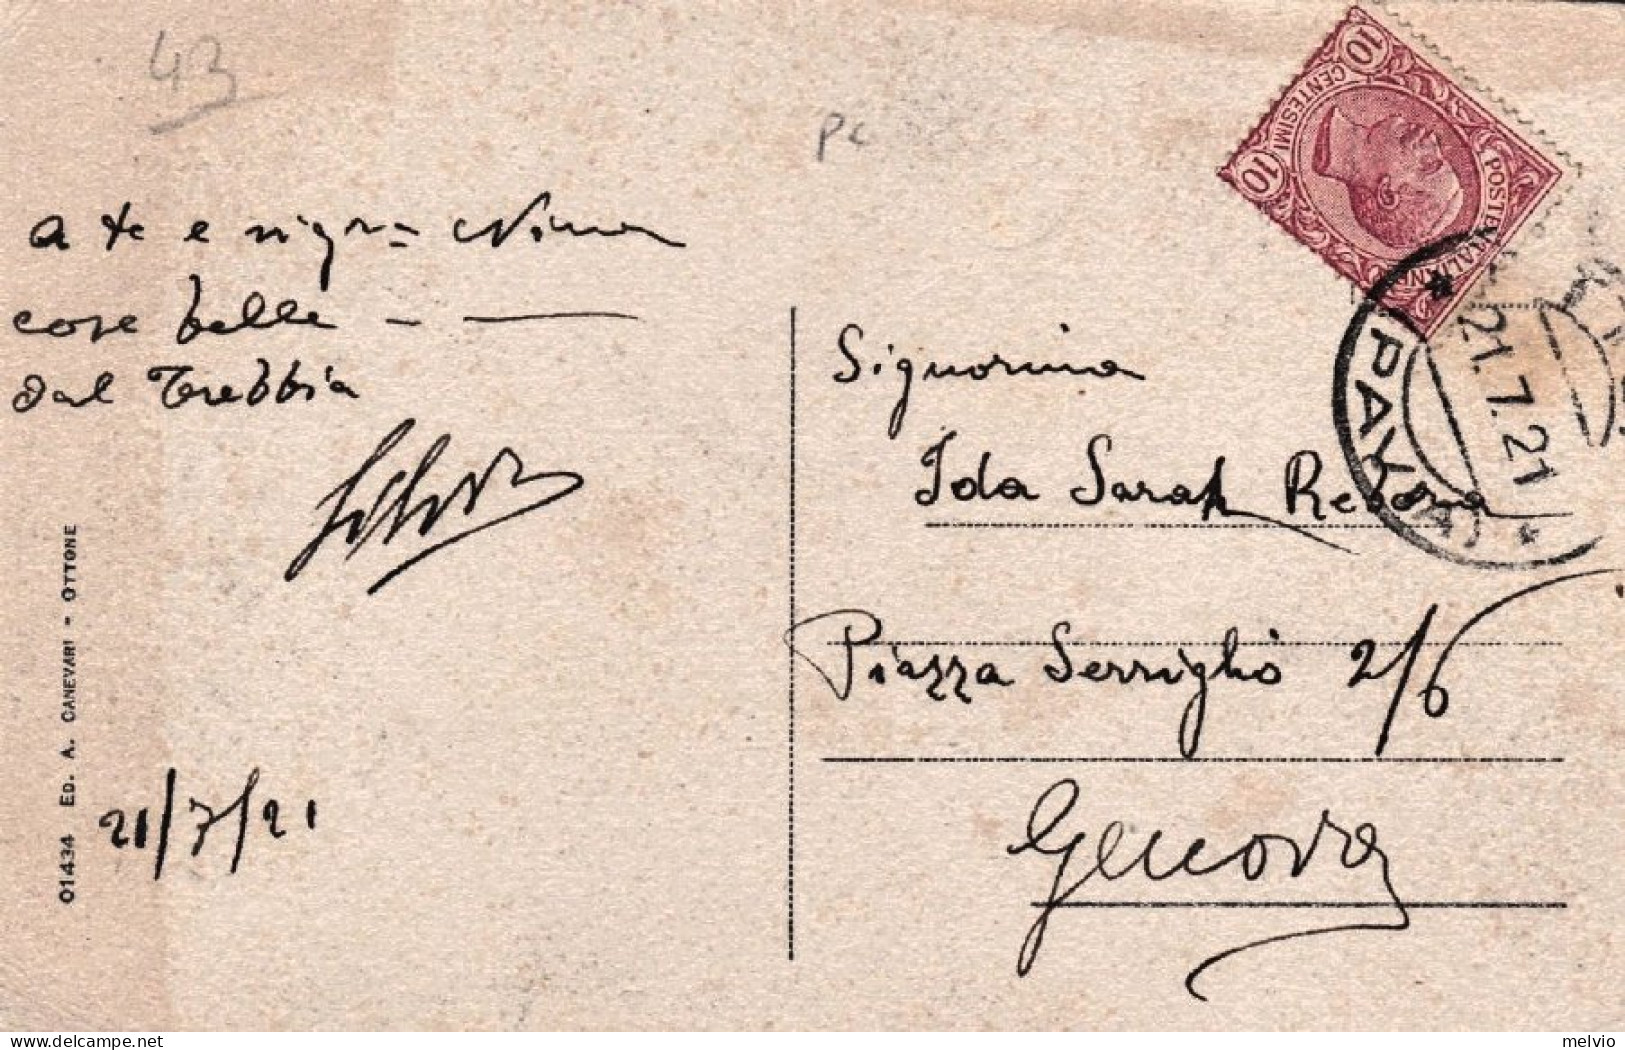 43
pc
10 CENTESIMI 10
POSTE ITALIANE
PAVIA
21.7.21
a te e sigra Nina
cose belle
dal Trebbia
21/7/21
01434 ED. A. CANEVARI - OTTONE
Signorina
Ida Sarah
Piazza Serriglio 2/6
Genova
melvio